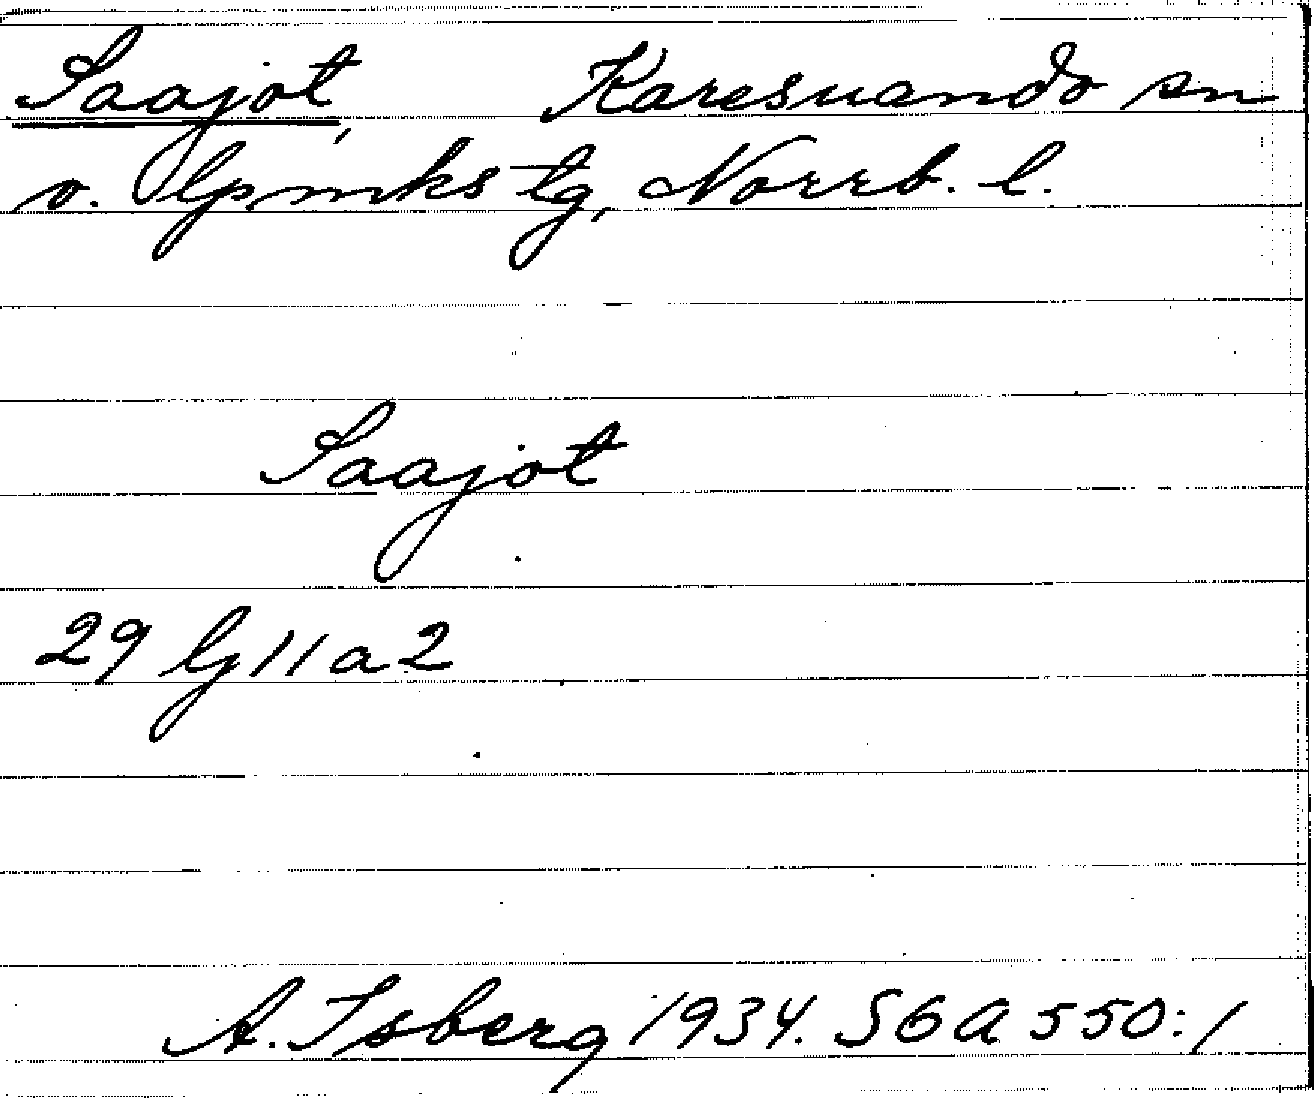 Saajot, Karesuando sn
o. lpmks tg, Norrb. l.
Saajot
29 lj 11 a 2
A. Isberg 1934. SGA 550:1